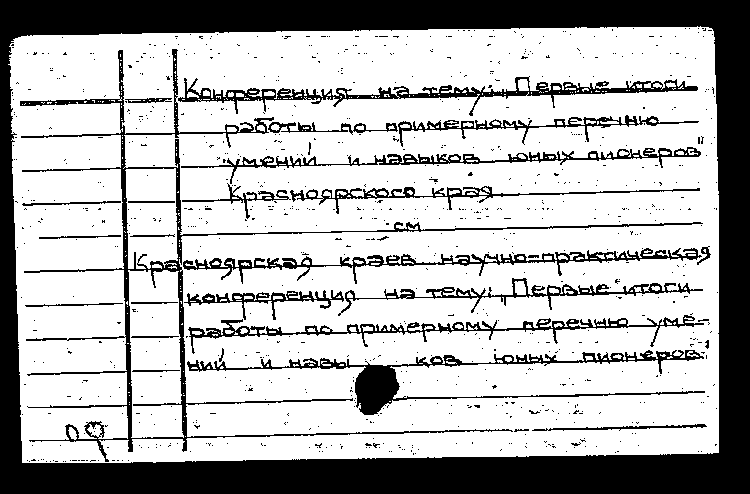 Конференция на тему: „Первые итоги
работы по примерному перечню
умений и навыков юных пионеров"
Красноярского края
см
Красноярская краев научно-практическая
конференция на тему: „Первые итоги
работы по примерному перечню уме-
ний и навыков юных пионеров"